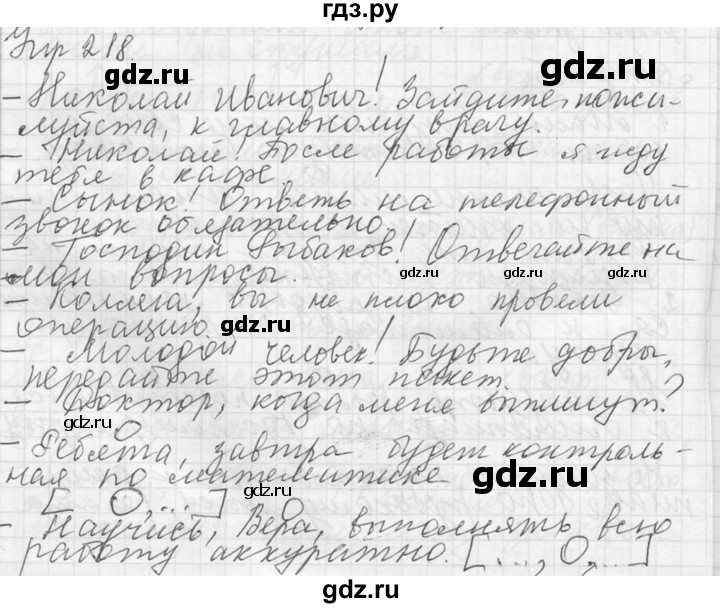 гдз.ру
Упр 218.
– Николай Иванович! Зайдите, пожа-
луйста, к главному врачу.
– Николай! После работы я жду
тебя в кафе.
– Сынок! Ответь на телефонный
звонок обязательно.
– Господин Рыбаков! Отвечайте на
мои вопросы.
– Коллега, вы не плохо провели
операцию.
– Молодой человек! Будьте добры,
передайте этот пакет.
– Доктор, когда меня выпишут?
– Ребята, завтра будет контроль-
ная по математике
[ О, ... ]
– Научись, Вера, выполнять всю
работу аккуратно. [..., О, ...]
gdz.ru
gdz.ru
gdz.ru
gdz.ru
gdz.ru
gdz.ru
gdz.ru
gdz.ru
gdz.ru
gdz.ru
gdz.ru
gdz.ru
gdz.ru